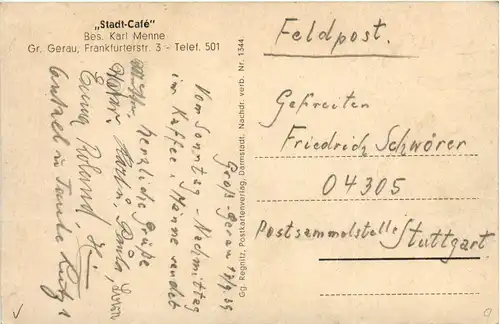 „Stadt-Café"
Bes. Karl Menne
Gr. Gerau, Frankfurterstr. 3 - Telef. 501
Groß-Gerau 17/9.39
Vom Sonntag-Nachmittag
im Kaffee Männe sendet
herzliche Grüße
Karl u. Paula,
Emma, Roland,
Onkel u. Tante
Gg. Regnitz, Postkartenverlag, Darmstadt. Nachdr. verb. Nr. 1344.
Feldpost.
Gefreiten
Friedrich Schwörer
04305
Postsammelstelle Stuttgart